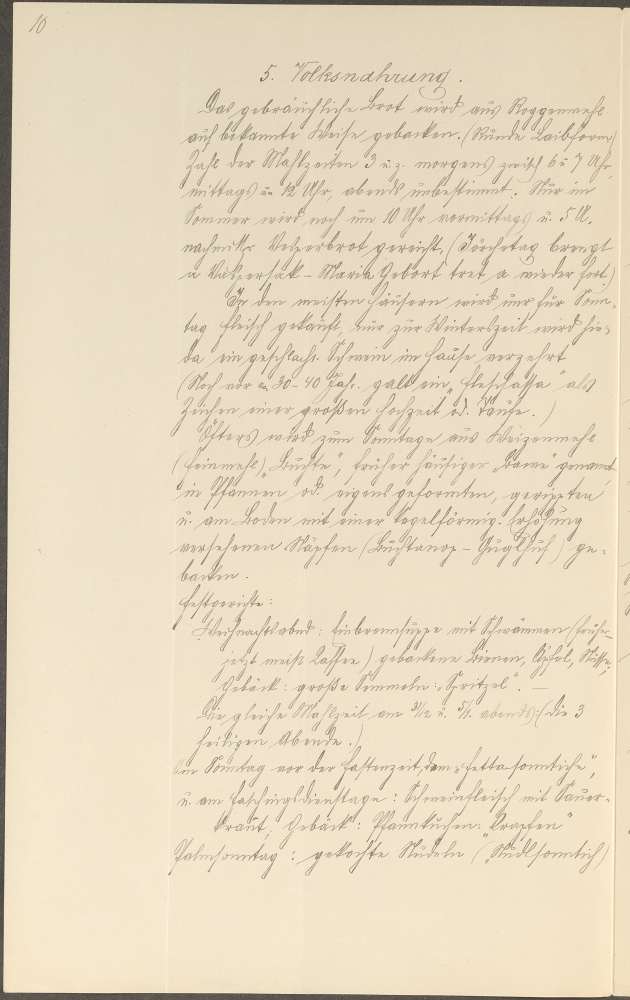 10
5. Volksnahrung.
Das gebräuchliche Brot wird aus Roggenmehl
auf bekannte Weise gebacken. (Runde Laibform)
Zahl der Mahlzeiten 3 u. z. morgens zwisch 6 u 7 Uhr,
mittags um 12 Uhr, abends unbestimmt. Nur im
Sommer wird noch um 10 Uhr vormittags u. 5 U.
nachmitts Vesperbrot gereicht, (Jörchetag brengt
a Vaspersak - Maria Gebort tret a wieder fort.)
In den meisten Häusern wird nur für Sonn-
tag Fleisch gekauft, nur zur Winterszeit wird hie u
da ein geschlacht. Schwein im Hause verzehrt
(Noch vor ca 30-40 Jahr. galt ein "Fleschassa" als
Zeichen einer großen Hochzeit od. Taufe.)
Öfters wird zum Sonntage aus Weizenmehl
(Feinmehl) "Buchte", früher häufiger "Bawe" genannt
in Pfannen od. eigens geformten, gerippten
u. am Boden mit einer kegelförmig. Erhöhung
versehenen Näpfen (Buchtanop - Guglhuf) ge-
backen.
Festgerichte:
Weihnachtsabnd: Einbrennsuppe mit Schwämmen (früher
jetzt meist Kaffee) gebackene Birnen, Äpfel, Nüsse;
Gebäck: große Semmeln: "Spritzel". -
Die gleiche Mahlzeit am 31/12 u. 5/1. abends: (die 3
heiligen Abende.)
Am Sonntag vor der Fastenzeit, dem "Fetta-sonntiche",
u. am Faschingsdienstage: Schweinfleisch mit Sauer-
kraut, Gebäck: Pfannkuchen: "Krapfen"
Palmsonntag: gekochte Nudeln ("Nudlsonntich)